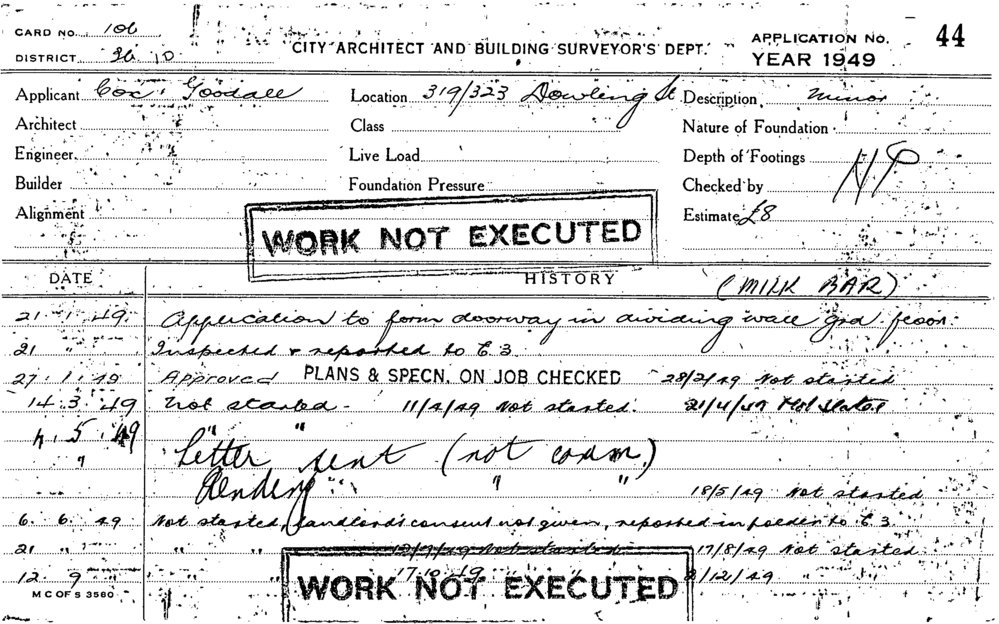 CARD NO. 106
DISTRICT 2b 10
CITY ARCHITECT AND BUILDING SURVEYOR'S DEPT.
APPLICATION No. 44
YEAR 1949
Applicant Cox & Goodall Location 319/323 Dowling St Description Minor
Architect Class Nature of Foundation
Engineer Live Load Depth of Footings
Builder Foundation Pressure Checked by
Alignment Estimate £8
WORK NOT EXECUTED
DATE HISTORY (MILK BAR)
21.1.49. Application to form doorway in dividing wall grd floor.
21 " Inspected & reported to E.3.
27.1.49 Approved PLANS & SPECN. ON JOB CHECKED 28/2/49 Not started
14.3.49 Not started - 11/4/49 Not started. 21/4/49 Not started
4.5.49 " "
" Letter sent (not comm.)
Pending " " 18/5/49 Not started
6.6.49 Not started, landlord's consent not given, reported in folder to E 3.
21 " " " " 12/7/49 Not started 17/8/49 Not started
12.9 " " " 17.10.49 " " /12/49 " "
WORK NOT EXECUTED
M C OF S 3580